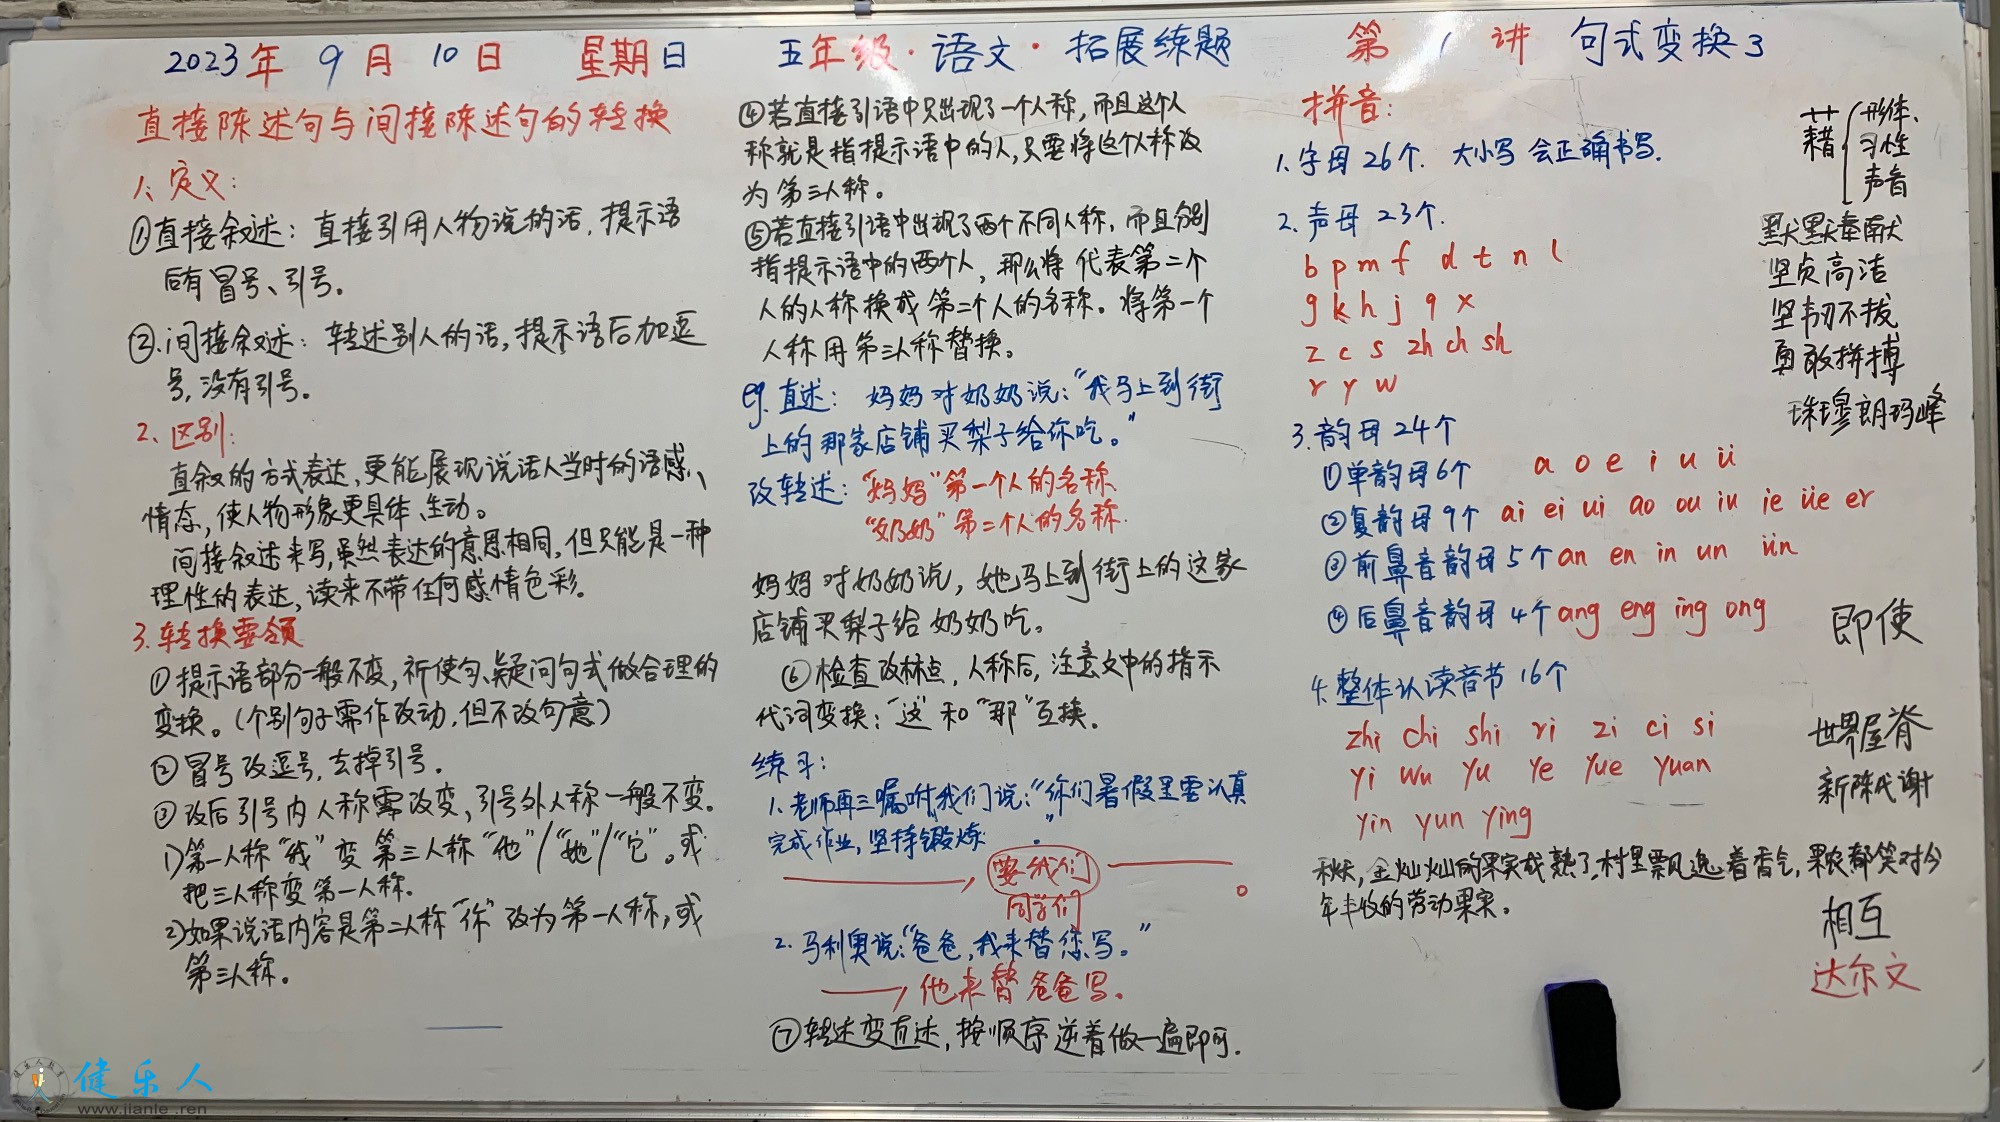 2023年 9月 10日 星期日 五年级·语文·拓展练题 第1讲 句式变换3
直接陈述句与间接陈述句的转换
1、定义：
①直接叙述：直接引用人物说的话，提示语
后有冒号、引号。
②.间接叙述：转述别人的话，提示语后加逗
号，没有引号。
2、区别：
直叙的方式表达，更能展现说话人当时的语感、
情态，使人物形象更具体、生动。
间接叙述来写，虽然表达的意思相同，但只能是一种
理性的表达，读来不带任何感情色彩。
3.转换要领
①提示语部分一般不变，祈使句、疑问句式做合理的
变换。（个别句子需作改动，但不改句意）
②冒号改逗号，去掉引号。
③改后引号内人称需改变，引号外人称一般不变。
1)第一人称“我”变第三人称“他”/“她”/“它”。或
把三人称变第一人称。
2)如果说话内容是第二人称“你”改为第一人称，或
第三人称。
④若直接引语中只出现了一个人称，而且这个人
称就是指提示语中的人，只要将这个人称改
为第三人称。
⑤若直接引语中出现了两个不同人称，而且分别
指提示语中的两个人，那么将代表第二个
人的人称换成第二个人的名称。将第一个
人称用第三人称替换。
eg.直述：妈妈对奶奶说：“我马上到街
上的那家店铺买梨子给你吃。”
改转述：“妈妈”第一个人的名称
“奶奶”第二个人的名称.
妈妈对奶奶说，她马上到街上的这家
店铺买梨子给奶奶吃。
⑥检查改标点，人称后，注意文中的指示
代词变换：“这”和“那”互换.
练习：
1.老师再三嘱咐我们说：“你们暑假里要认真
完成作业，坚持锻炼.”
，要我们 。
同学们
2.马利奥说：“爸爸，我来替您写。”
，他来替爸爸写。
⑦转述变直述，按顺序逆着做一遍即可.
拼音：
1.字母26个. 大小写会正确书写.
2.声母23个.
b p m f d t n l
g k h j q x
z c s zh ch sh
r y w
3.韵母24个
①单韵母6个 a o e i u ü
②复韵母9个 ai ei ui ao ou iu ie üe er
③前鼻音韵母5个 an en in un ün
④后鼻音韵母4个 ang eng ing ong
4.整体认读音节16个
zhi chi shi ri zi ci si
yi wu yu ye yue yuan
yin yun ying
秋天，金灿灿的果实成熟了，村里飘逸着香气，果农都笑对今
年丰收的劳动果实。
藉
形体、
习性
声音
默默奉献
坚贞高洁
坚韧不拔
勇敢拼搏
珠穆朗玛峰
即使
世界屋脊
新陈代谢
相互
达尔文
健乐人
www.jianle.ren